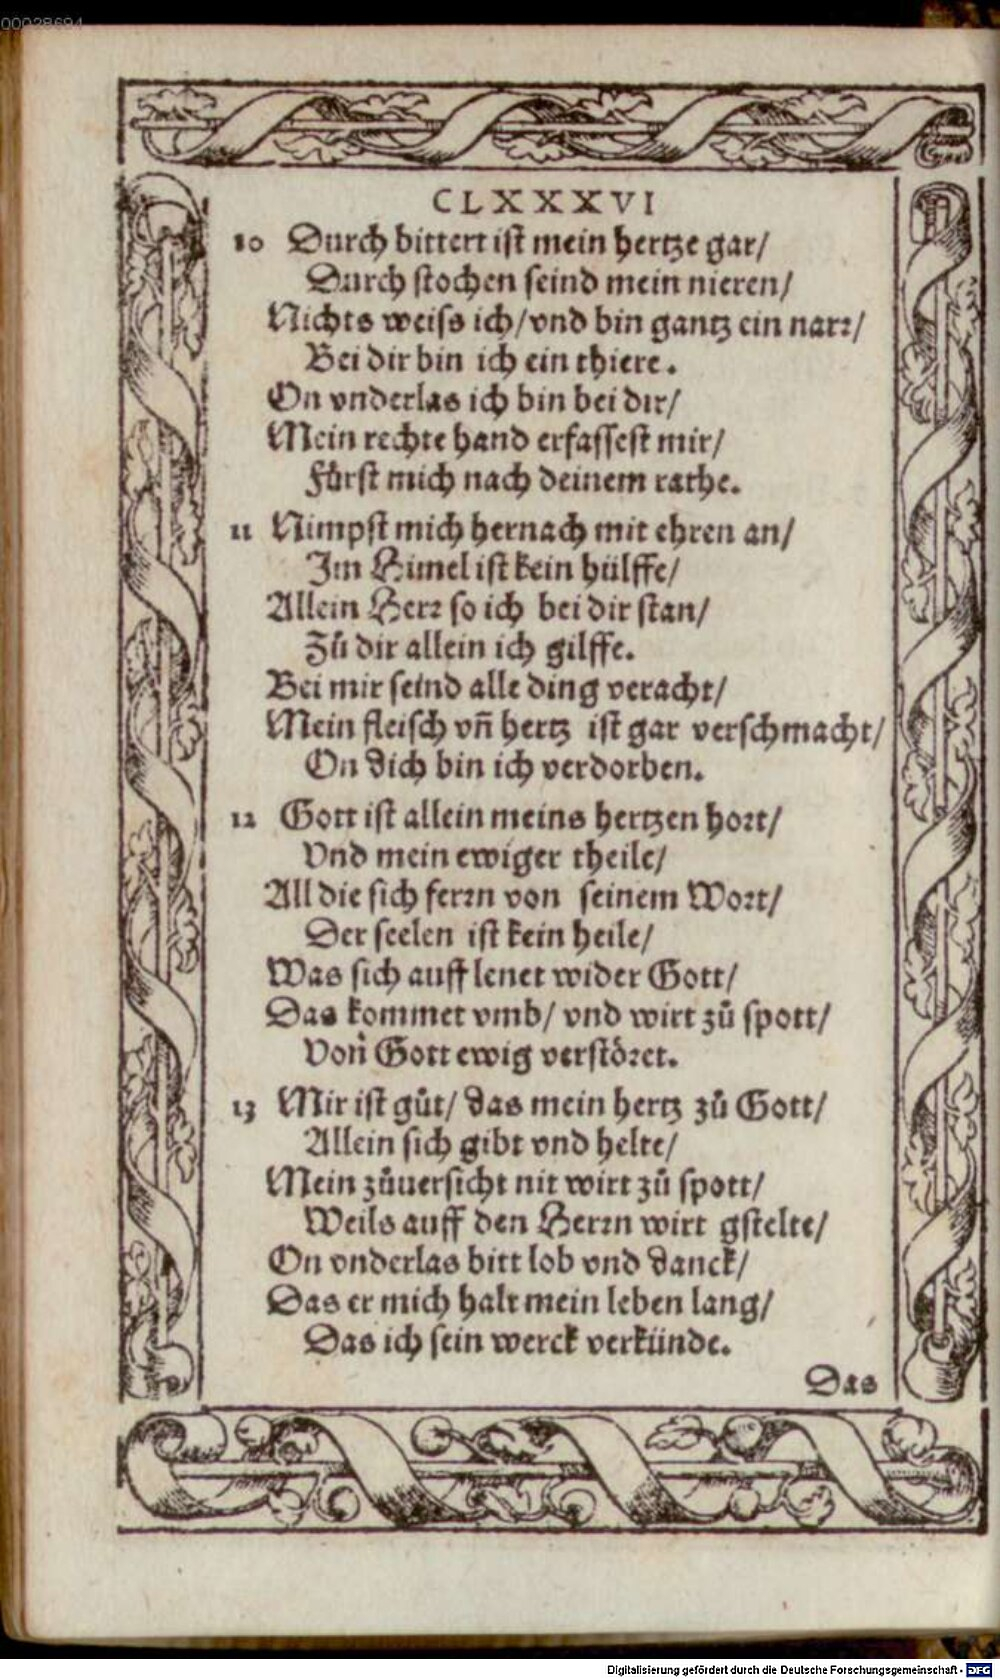 00028694
CLXXXVI
10 Durch bittert ist mein hertze gar/
Durch stochen seind mein nieren/
Nichts weiss ich/vnd bin gantz ein narr/
Bei dir bin ich ein thiere.
On vnderlas ich bin bei dir/
Mein rechte hand erfassest mir/
Fürst mich nach deinem rathe.
11 Nimpst mich hernach mit ehren an/
Im Himel ist kein hülffe/
Allein Herr so ich bei dir stan/
Zů dir allein ich gilffe.
Bei mir seind alle ding veracht/
Mein fleisch vñ hertz ist gar verschmacht/
On dich bin ich verdorben.
12 Gott ist allein meins hertzen hort/
Vnd mein ewiger theile/
All die sich ferrn von seinem Wort/
Der seelen ist kein heile/
Was sich auff lenet wider Gott/
Das kommet vmb/ vnd wirt zů spott/
Von Gott ewig verstöret.
13 Mir ist gůt/ das mein hertz zů Gott/
Allein sich gibt vnd helte/
Mein zůuersicht nit wirt zů spott/
Weils auff den Herrn wirt gstelte/
On vnderlas bitt lob vnd danck/
Das er mich halt mein leben lang/
Das ich sein werck verkünde.
Das
Digitalisierung gefördert durch die Deutsche Forschungsgemeinschaft - DFG